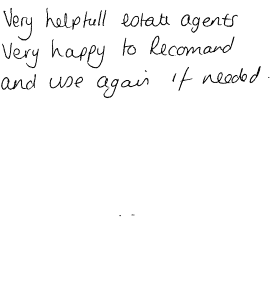 Very helpfull estate agents
Very happy to Recomand
and use again if needed.